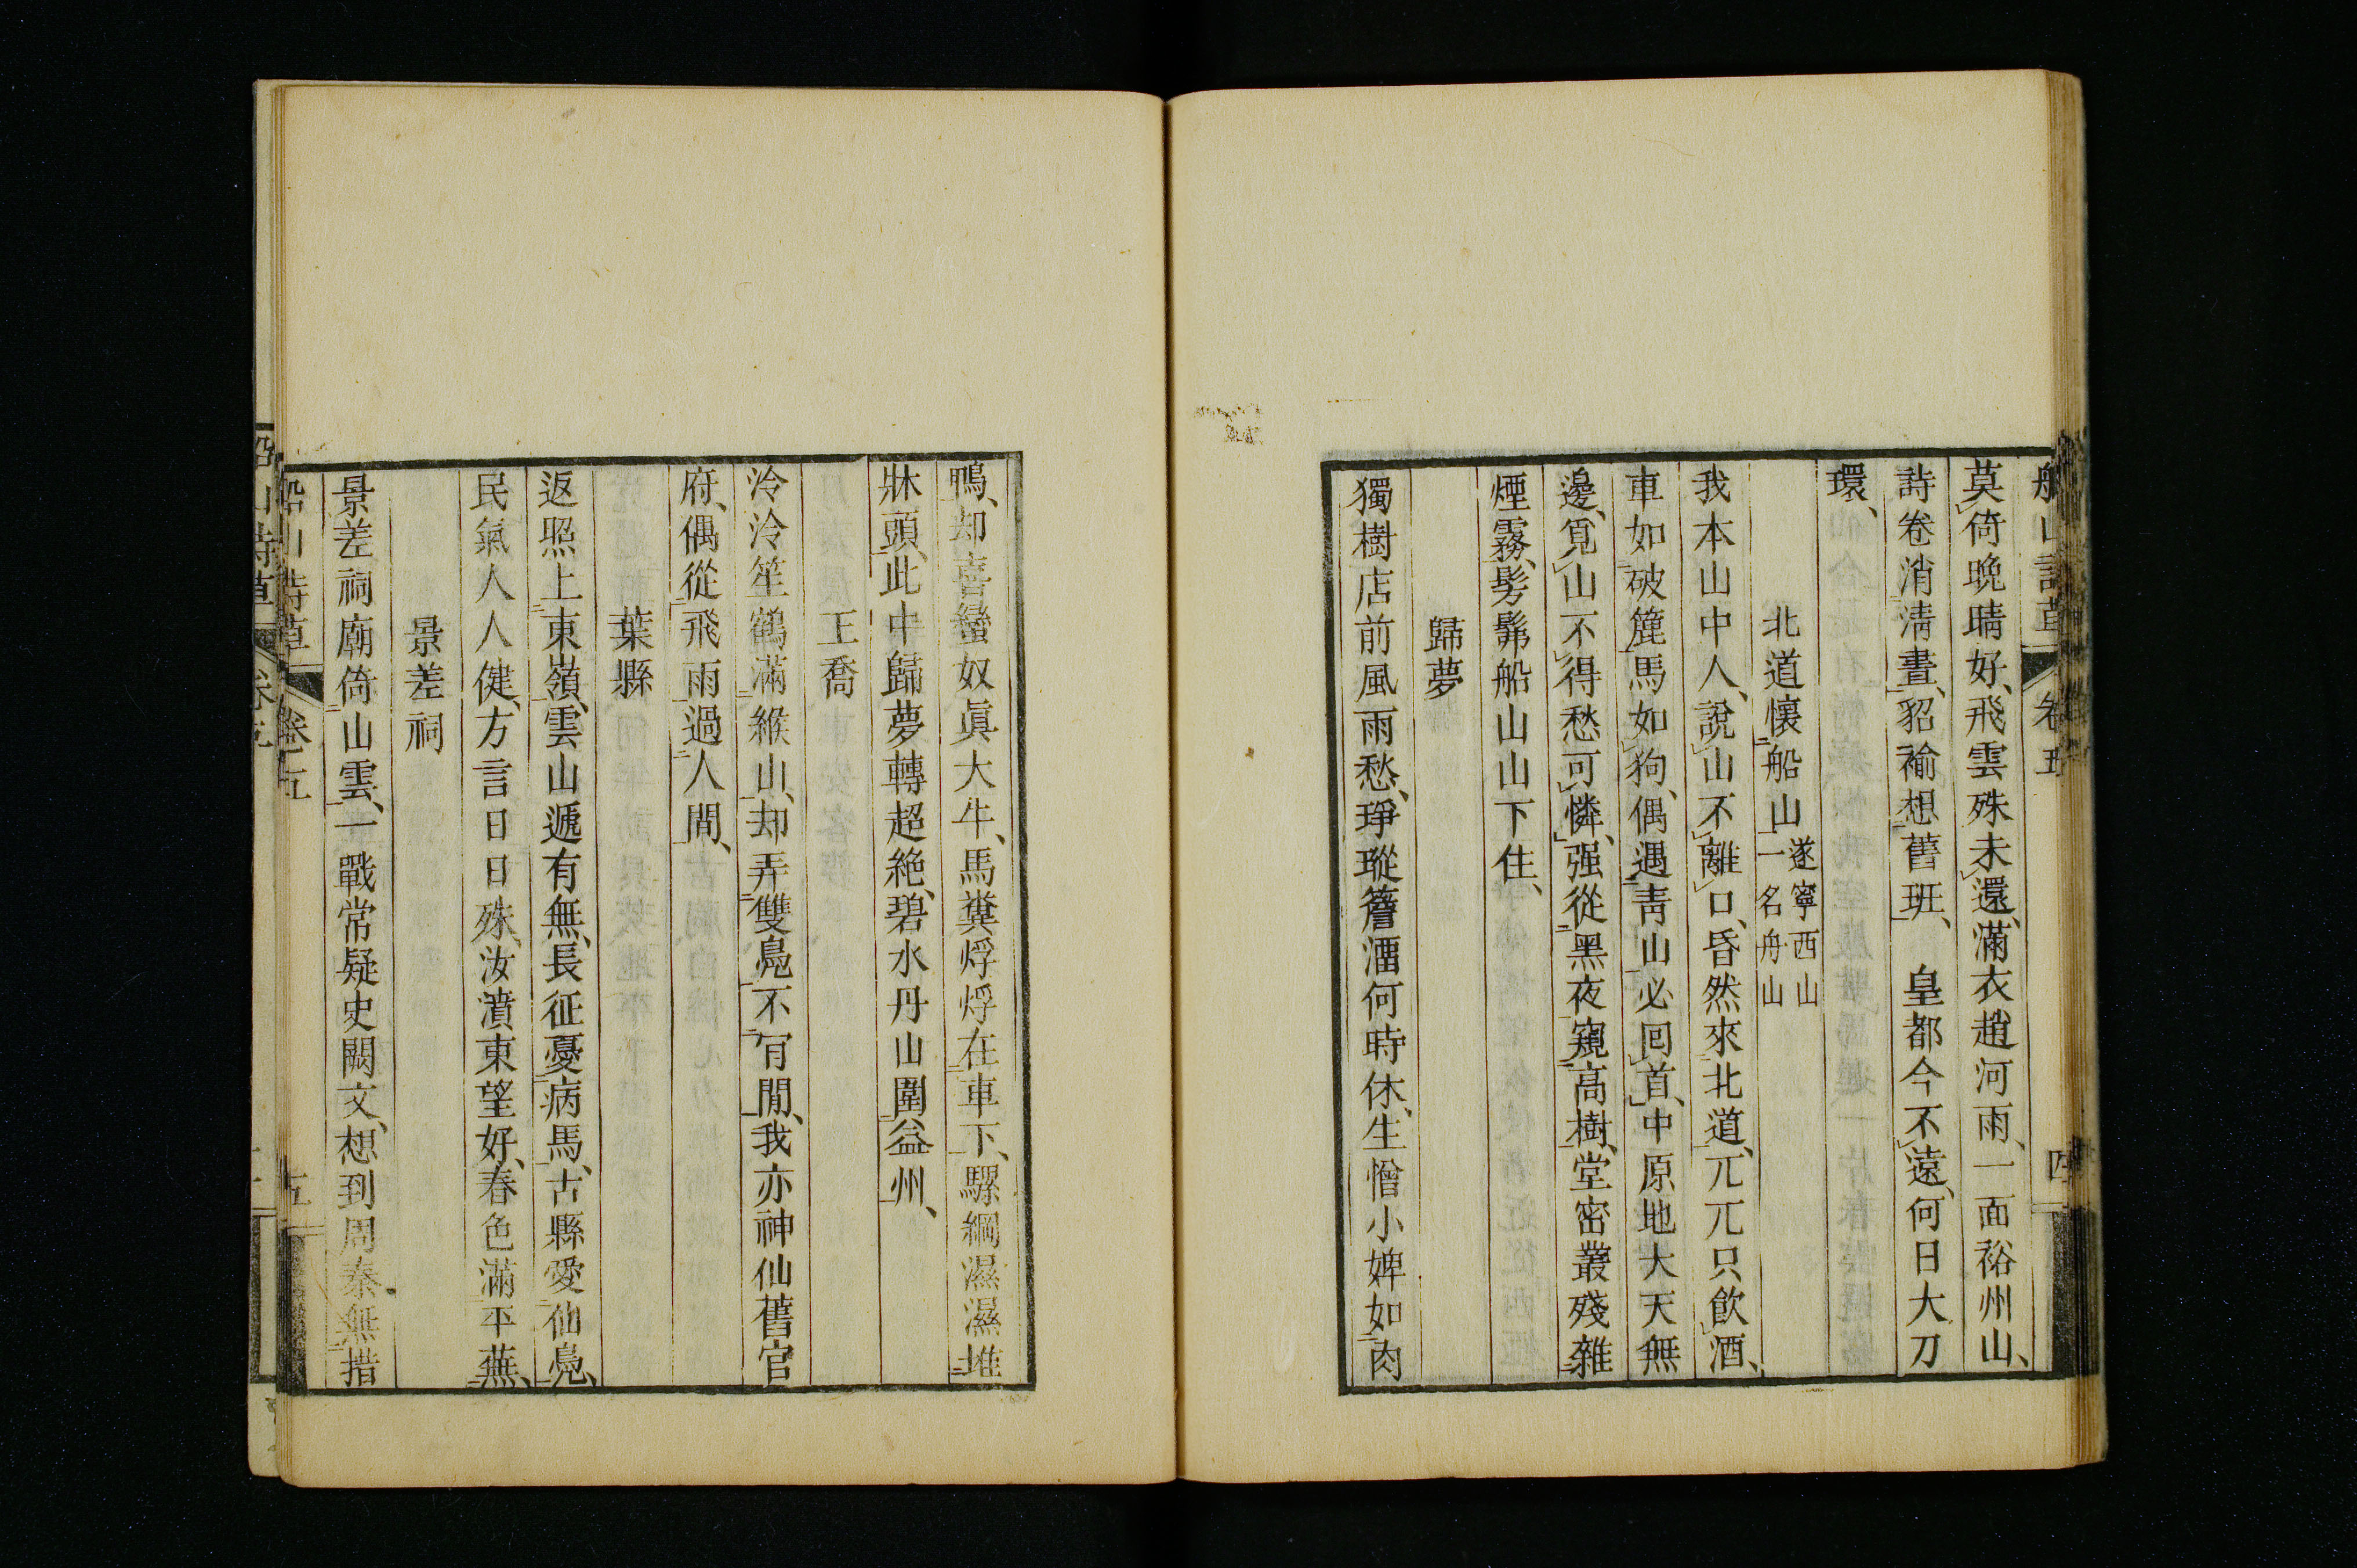 船山詩草 卷五 四
莫倚晚晴好、飛雲殊未還、滿衣趙河雨、一面裕州山、
詩卷消淸晝、貂褕想舊班、 皇都今不遠、何日大刀
環、
北道懷船山 遂寧西山一名舟山
我本山中人、說山不離口、昏然來北道、兀兀只飮酒、
車如破簏馬如狗、偶遇靑山必回首、中原地大天無
邊、覓山不得愁可憐、强從黑夜窺高樹、堂密叢殘雜
煙霧、髣髴船山山下住、
歸夢
獨樹店前風雨愁、琤瑽簷溜何時休、生憎小婢如肉
鴨、却喜蠻奴眞大牛、馬糞烰烰在車下、騾綱濕濕堆
牀頭、此中歸夢轉超絶、碧水丹山圍益州、
王喬
泠泠笙鶴滿緱山、却弄雙鳧不肎閒、我亦神仙舊官
府、偶從飛雨過人間、
葉縣
返照上東嶺、雲山遞有無、長征憂病馬、古縣愛仙鳧、
民氣人人健、方言日日殊、汝濆東望好、春色滿平蕪、
景差祠
景差祠廟倚山雲、一戰常疑史闕文、想到周秦無措
船山詩草 卷五 五